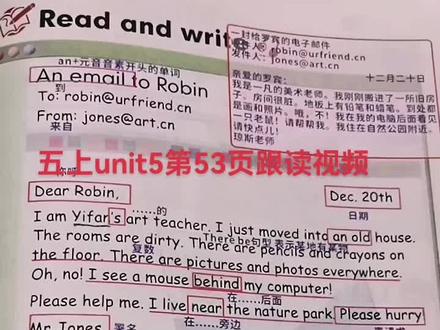 Read and write
一封给罗宾的电子邮件
robin@urfriend.cn
发件人: jones@art.cn
亲爱的罗宾:
十二月二十日
我是一凡的美术老师。我刚刚搬进了一所旧房
子。房间很脏。地板上有铅笔和蜡笔。到处都
是画和照片。哦,不!我在我的电脑后面看见
一只老鼠!请帮帮我。我住在自然公园附近。
请快点儿!
琼斯老师
an+元音音素开头的单词
An email to Robin
到
To: robin@urfriend.cn
From: jones@art.cn
来自
五上unit5第53页跟读视频
Dear Robin,
Dec. 20th
......的
日期
I am Yifan's art teacher. I just moved into an old house.
There be句型表示某地有某物
The rooms are dirty. There are pencils and crayons on
复数
the floor. There are pictures and photos everywhere.
Oh, no! I see a mouse behind my computer!
在......后面
Please help me. I live near the nature park. Please hurry
在......旁边
Mr. Jones
署名